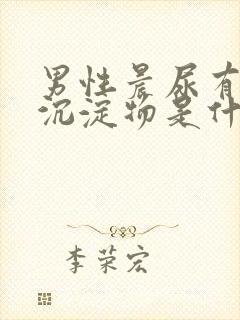 男性晨尿有
沉淀物是什
李荣宏